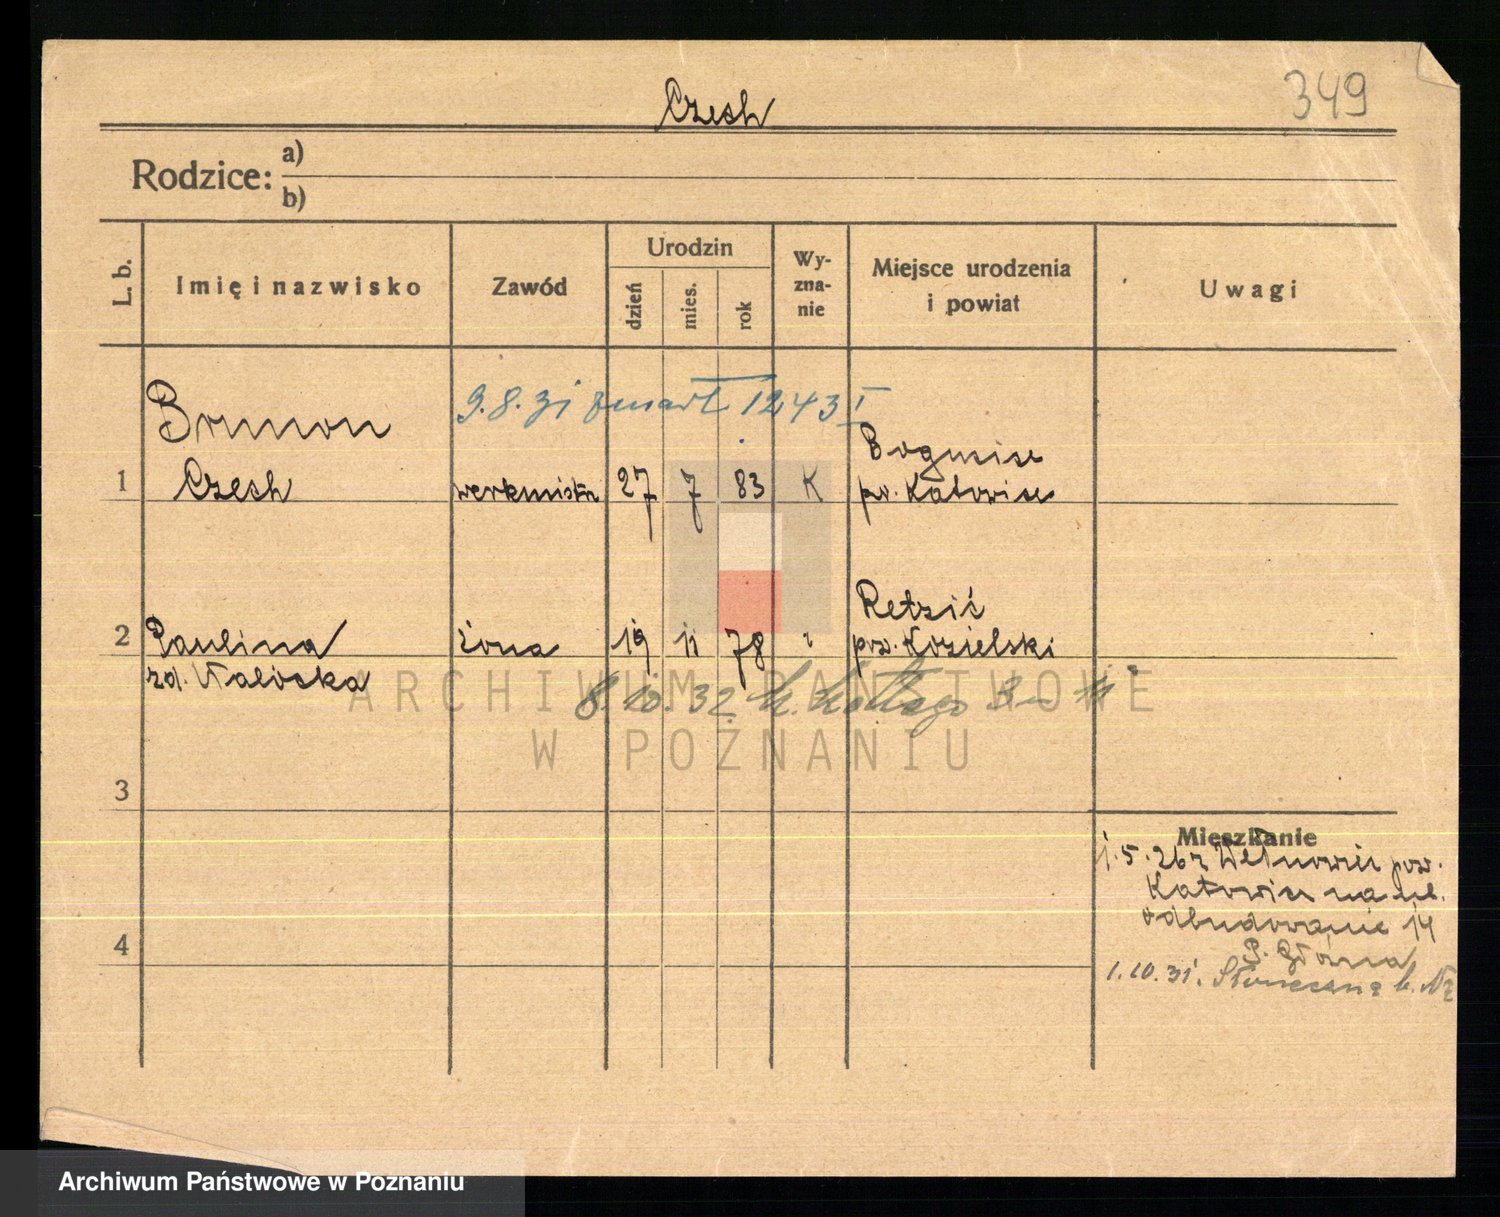 349
Czech
Rodzice: a)
b)
L. b.
Imię i nazwisko
Zawód
Urodzin
dzień
mies.
rok
Wy-
zna-
nie
Miejsce urodzenia
i powiat
Uwagi
9.8.31 zmarł 1243 I
Brunon
Bogucice
1 Czech werkmistrz 27 7 83 K pw. Katowice
2 Paulina żona 19 11 78 " pow. Kozielski
8.10.32
3
Mieszkanie
1.5.26r Wełnowiec pow.
Katowice na ul.
odbudowanie 14
1.10.31. Słoneczna
4
ARCHIWUM PAŃSTWOWE
W POZNANIU
Archiwum Państwowe w Poznaniu